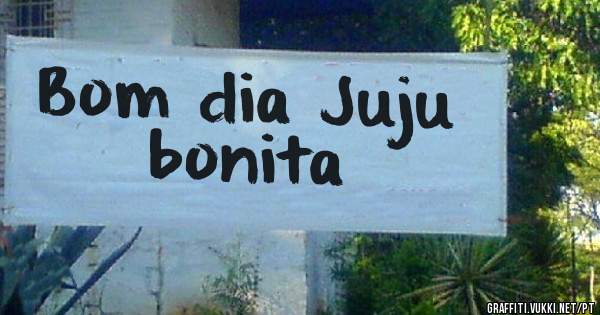 Bom dia Juju
bonita
GRAFFITI.VUKKI.NET/PT